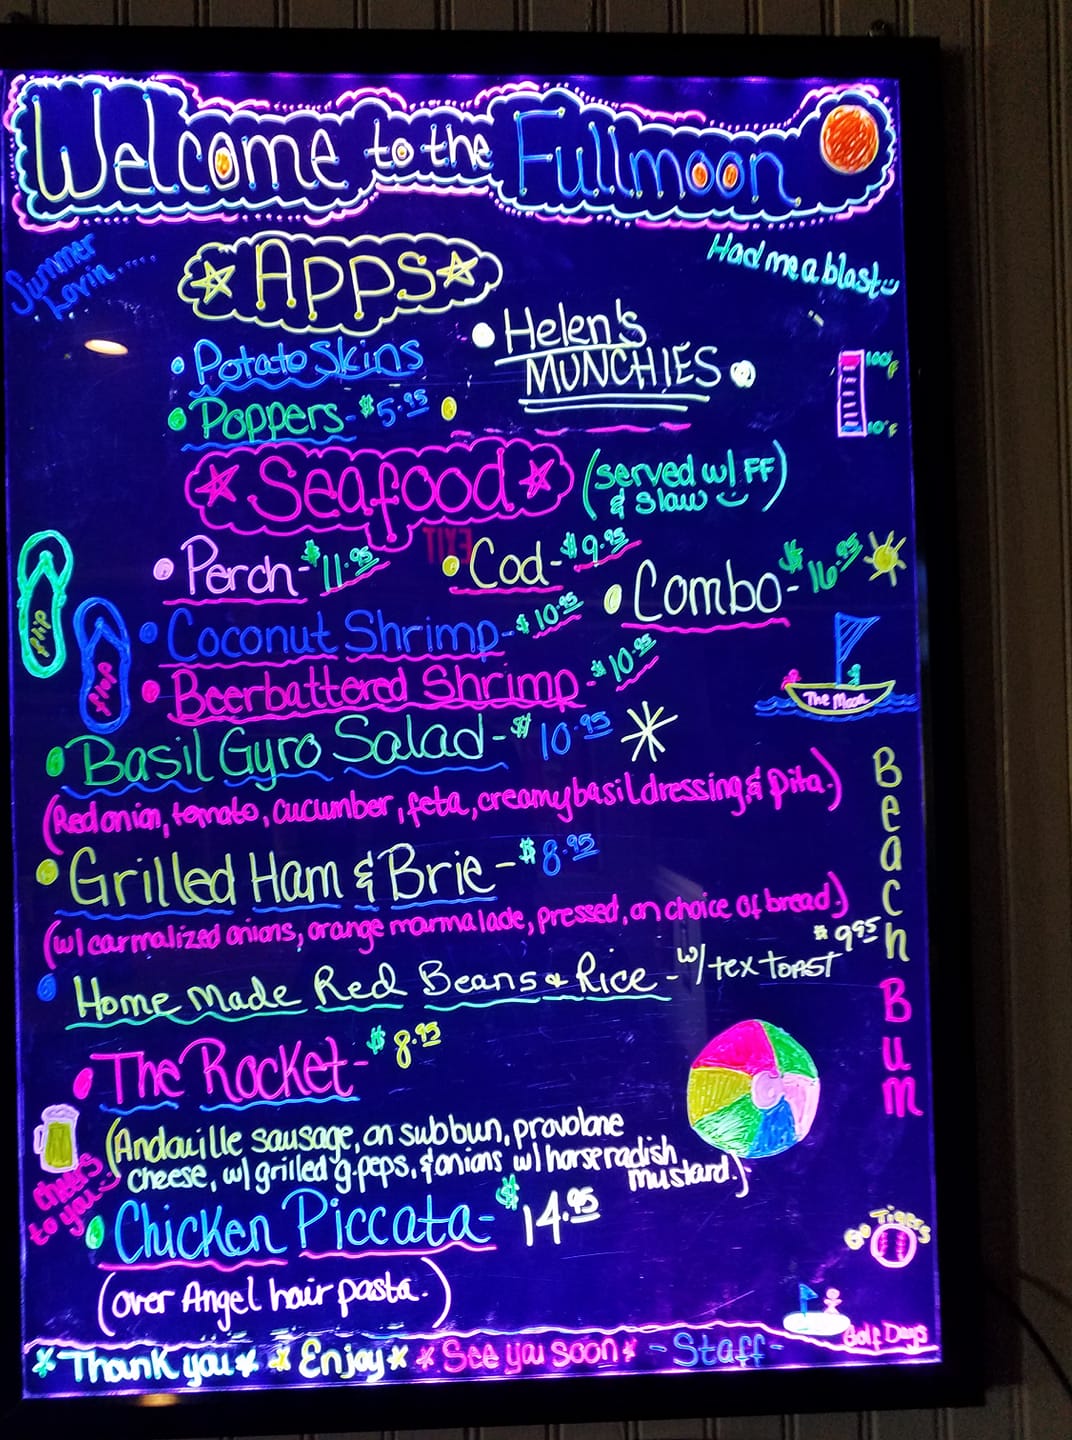 Welcome to the Fullmoon
Summer
Lovin.....
Had me a blast
Apps
Helen's
MUNCHIES
Potato Skins
Poppers - $5.95
100°F
10°F
Seafood
(served w/ FF
& slaw)
EXIT
Perch - $11.95
Cod - $9.95
Combo - $16.95
Coconut Shrimp - $10.95
Beerbattered Shrimp - $10.95
flip
flop
The Moon
Basil Gyro Salad - $10.95
(Red onion, tomato, cucumber, feta, creamy basil dressing & Pita.)
Grilled Ham & Brie - $8.95
(w/ carmalized onions, orange marmalade, pressed, on choice of bread.)
Beach Bum
$9.95
Home Made Red Beans & Rice - w/ tex TOAST
The Rocket - $8.95
(Andouille sausage, on subbun, provolone
cheese, w/ grilled g.peps, & onions w/ horseradish
mustard.)
cheers
to you
Chicken Piccata - $14.95
(over Angel hair pasta.)
GO TIGERS
Golf Days
Thank you Enjoy See you soon - Staff -